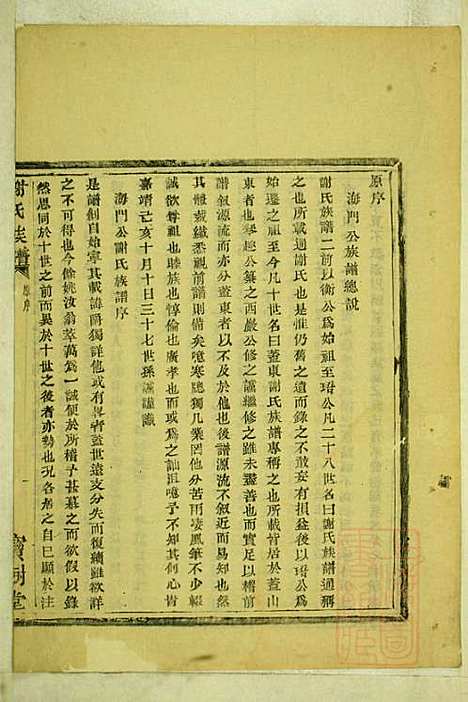 原序
海門公族譜總說
謝氏族譜二前以衡公為始祖至琯公凡二十八世名曰謝氏族譜通稱
之也所載過謝氏也是惟仍舊之道而錄之不敢妄有損益後以琯公為
始遷之祖至今凡十世名曰蓋東謝氏族譜專稱之也所載皆居於蓋山
東者也率趣公纂之西嚴公修之諴繼修之雖未盡善也而實足以稽前
譜叙源流而亦分蓋東者以不及於他也後譜源流不叙近而易知也然
其體裁纖悉視前譜則備矣噫寒窻獨几業罔他分苦雨凄風筆不少輟
誠欲尊祖也睦族也惇倫也廣孝也而或為之訕沮噫予不知其何心肯
嘉靖己亥十月十日三十七世孫諴謹識
海門公謝氏族譜序
是譜創自始寧其載諱爵獨詳他或有畧者蓋世遠支分失而復續雖欲詳
之不可得也今餘姚汝翁萃萬為一誠便於所稽予甚慕之而欲假以錄
然恩同於十世之前而異於十世之後者亦勢也況各居之自已顯於注
謝氏族譜
原序
寶樹堂